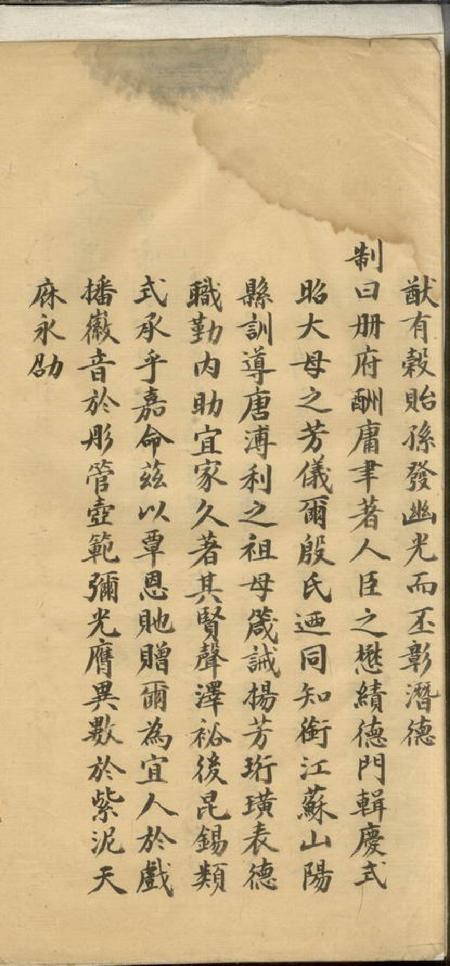 猷有穀貽孫發幽光而丕彰潛德
制曰册府酬庸聿著人臣之懋績德門輯慶式
昭大母之芳儀爾殷氏迺同知銜江蘇山陽
縣訓導唐溥利之祖母箴誡揚芳珩璜表德
職勤內助宜家久著其賢聲澤裕後昆錫類
式承乎嘉命茲以覃恩貤贈爾為宜人於戲
播徽音於彤管壼範彌光膺異數於紫泥天
庥永劭